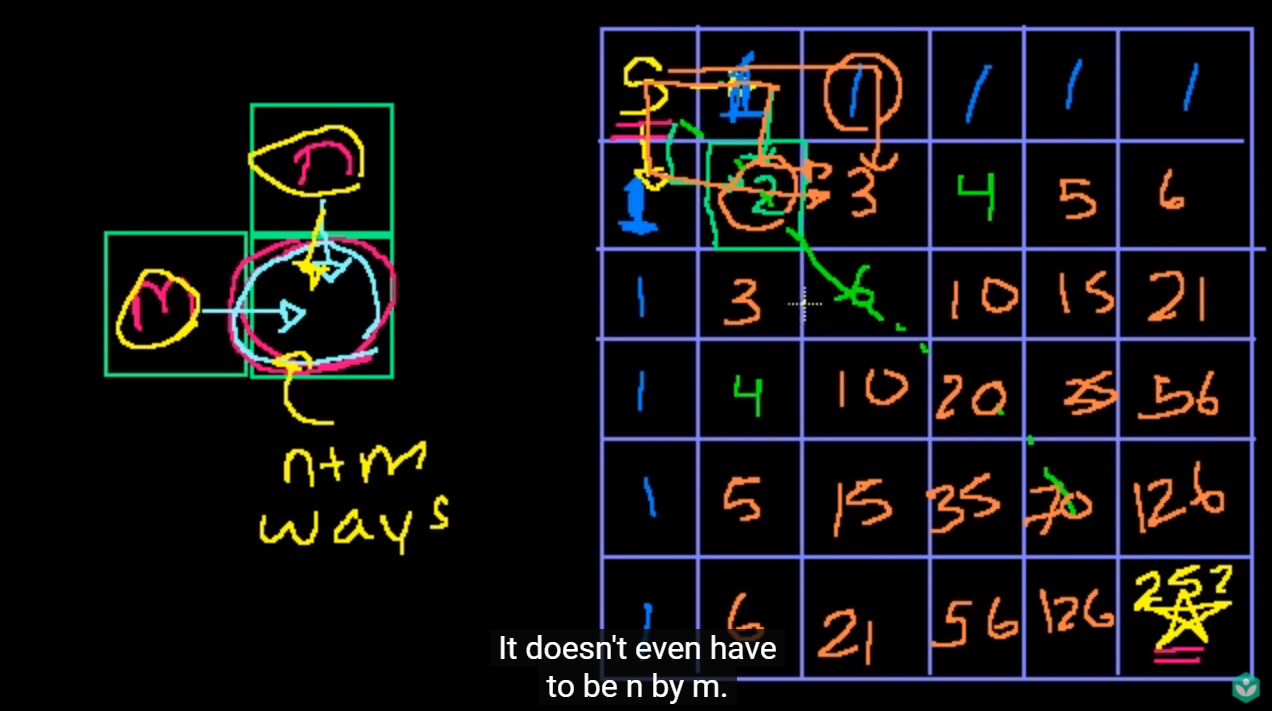 n
m
n+m
ways
S 1 1 1 1 1
1 2 3 4 5 6
1 3 6 10 15 21
1 4 10 20 35 56
1 5 15 35 70 126
1 6 21 56 126 252
It doesn't even have
to be n by m.